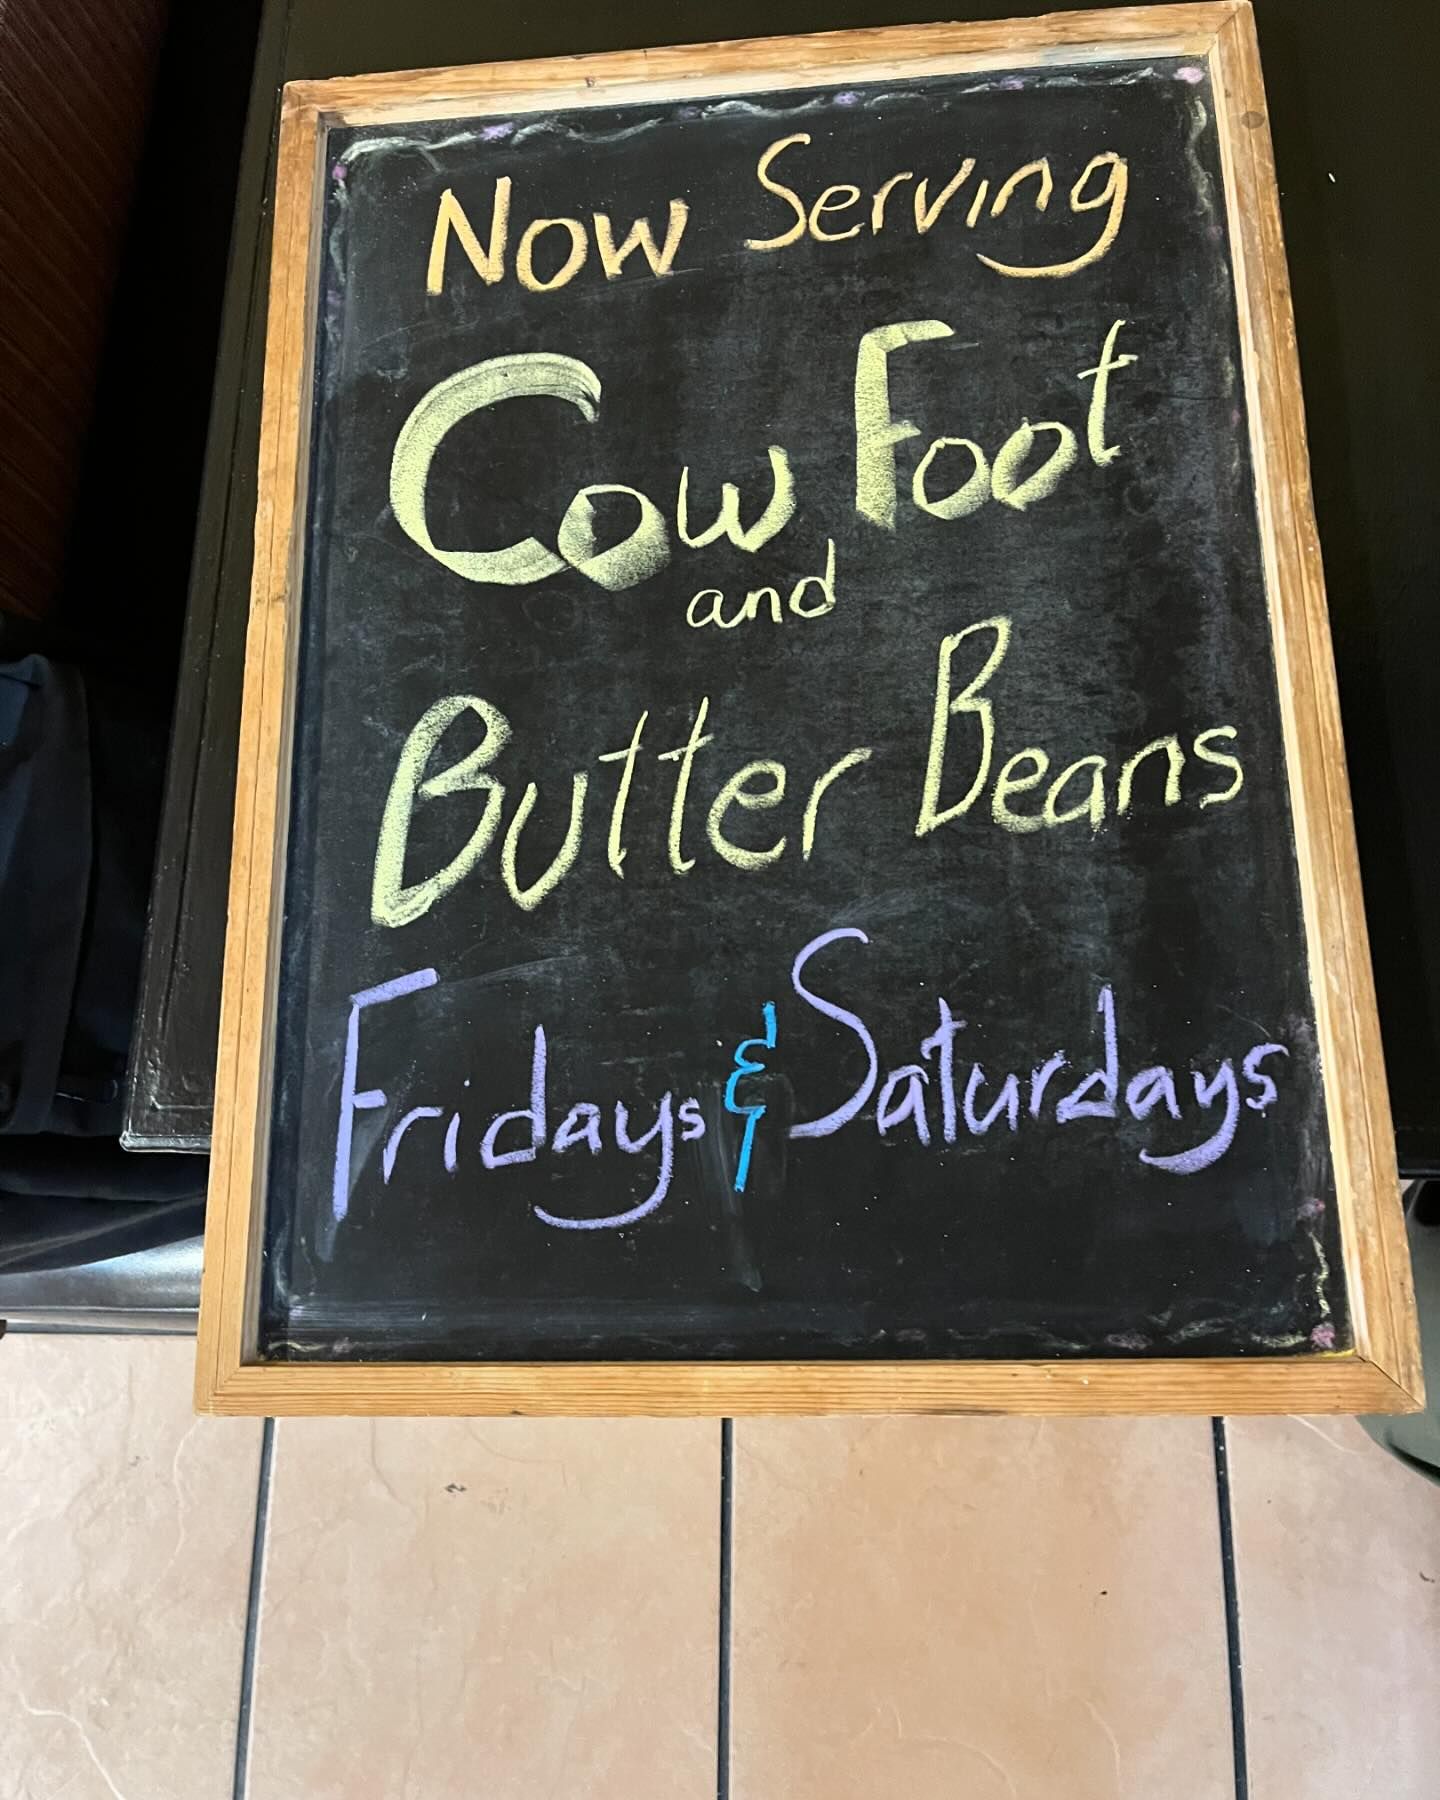 Now Serving
Cow Foot
and
Butter Beans
Fridays & Saturdays